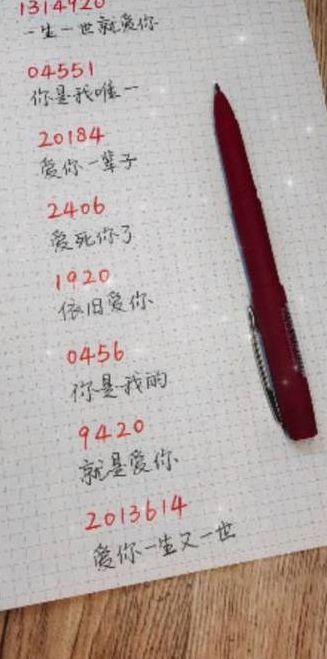 1314920
一生一世就爱你
04551
你是我唯一
20184
爱你一辈子
2406
爱死你了
1920
依旧爱你
0456
你是我的
9420
就是爱你
2013614
爱你一生又一世